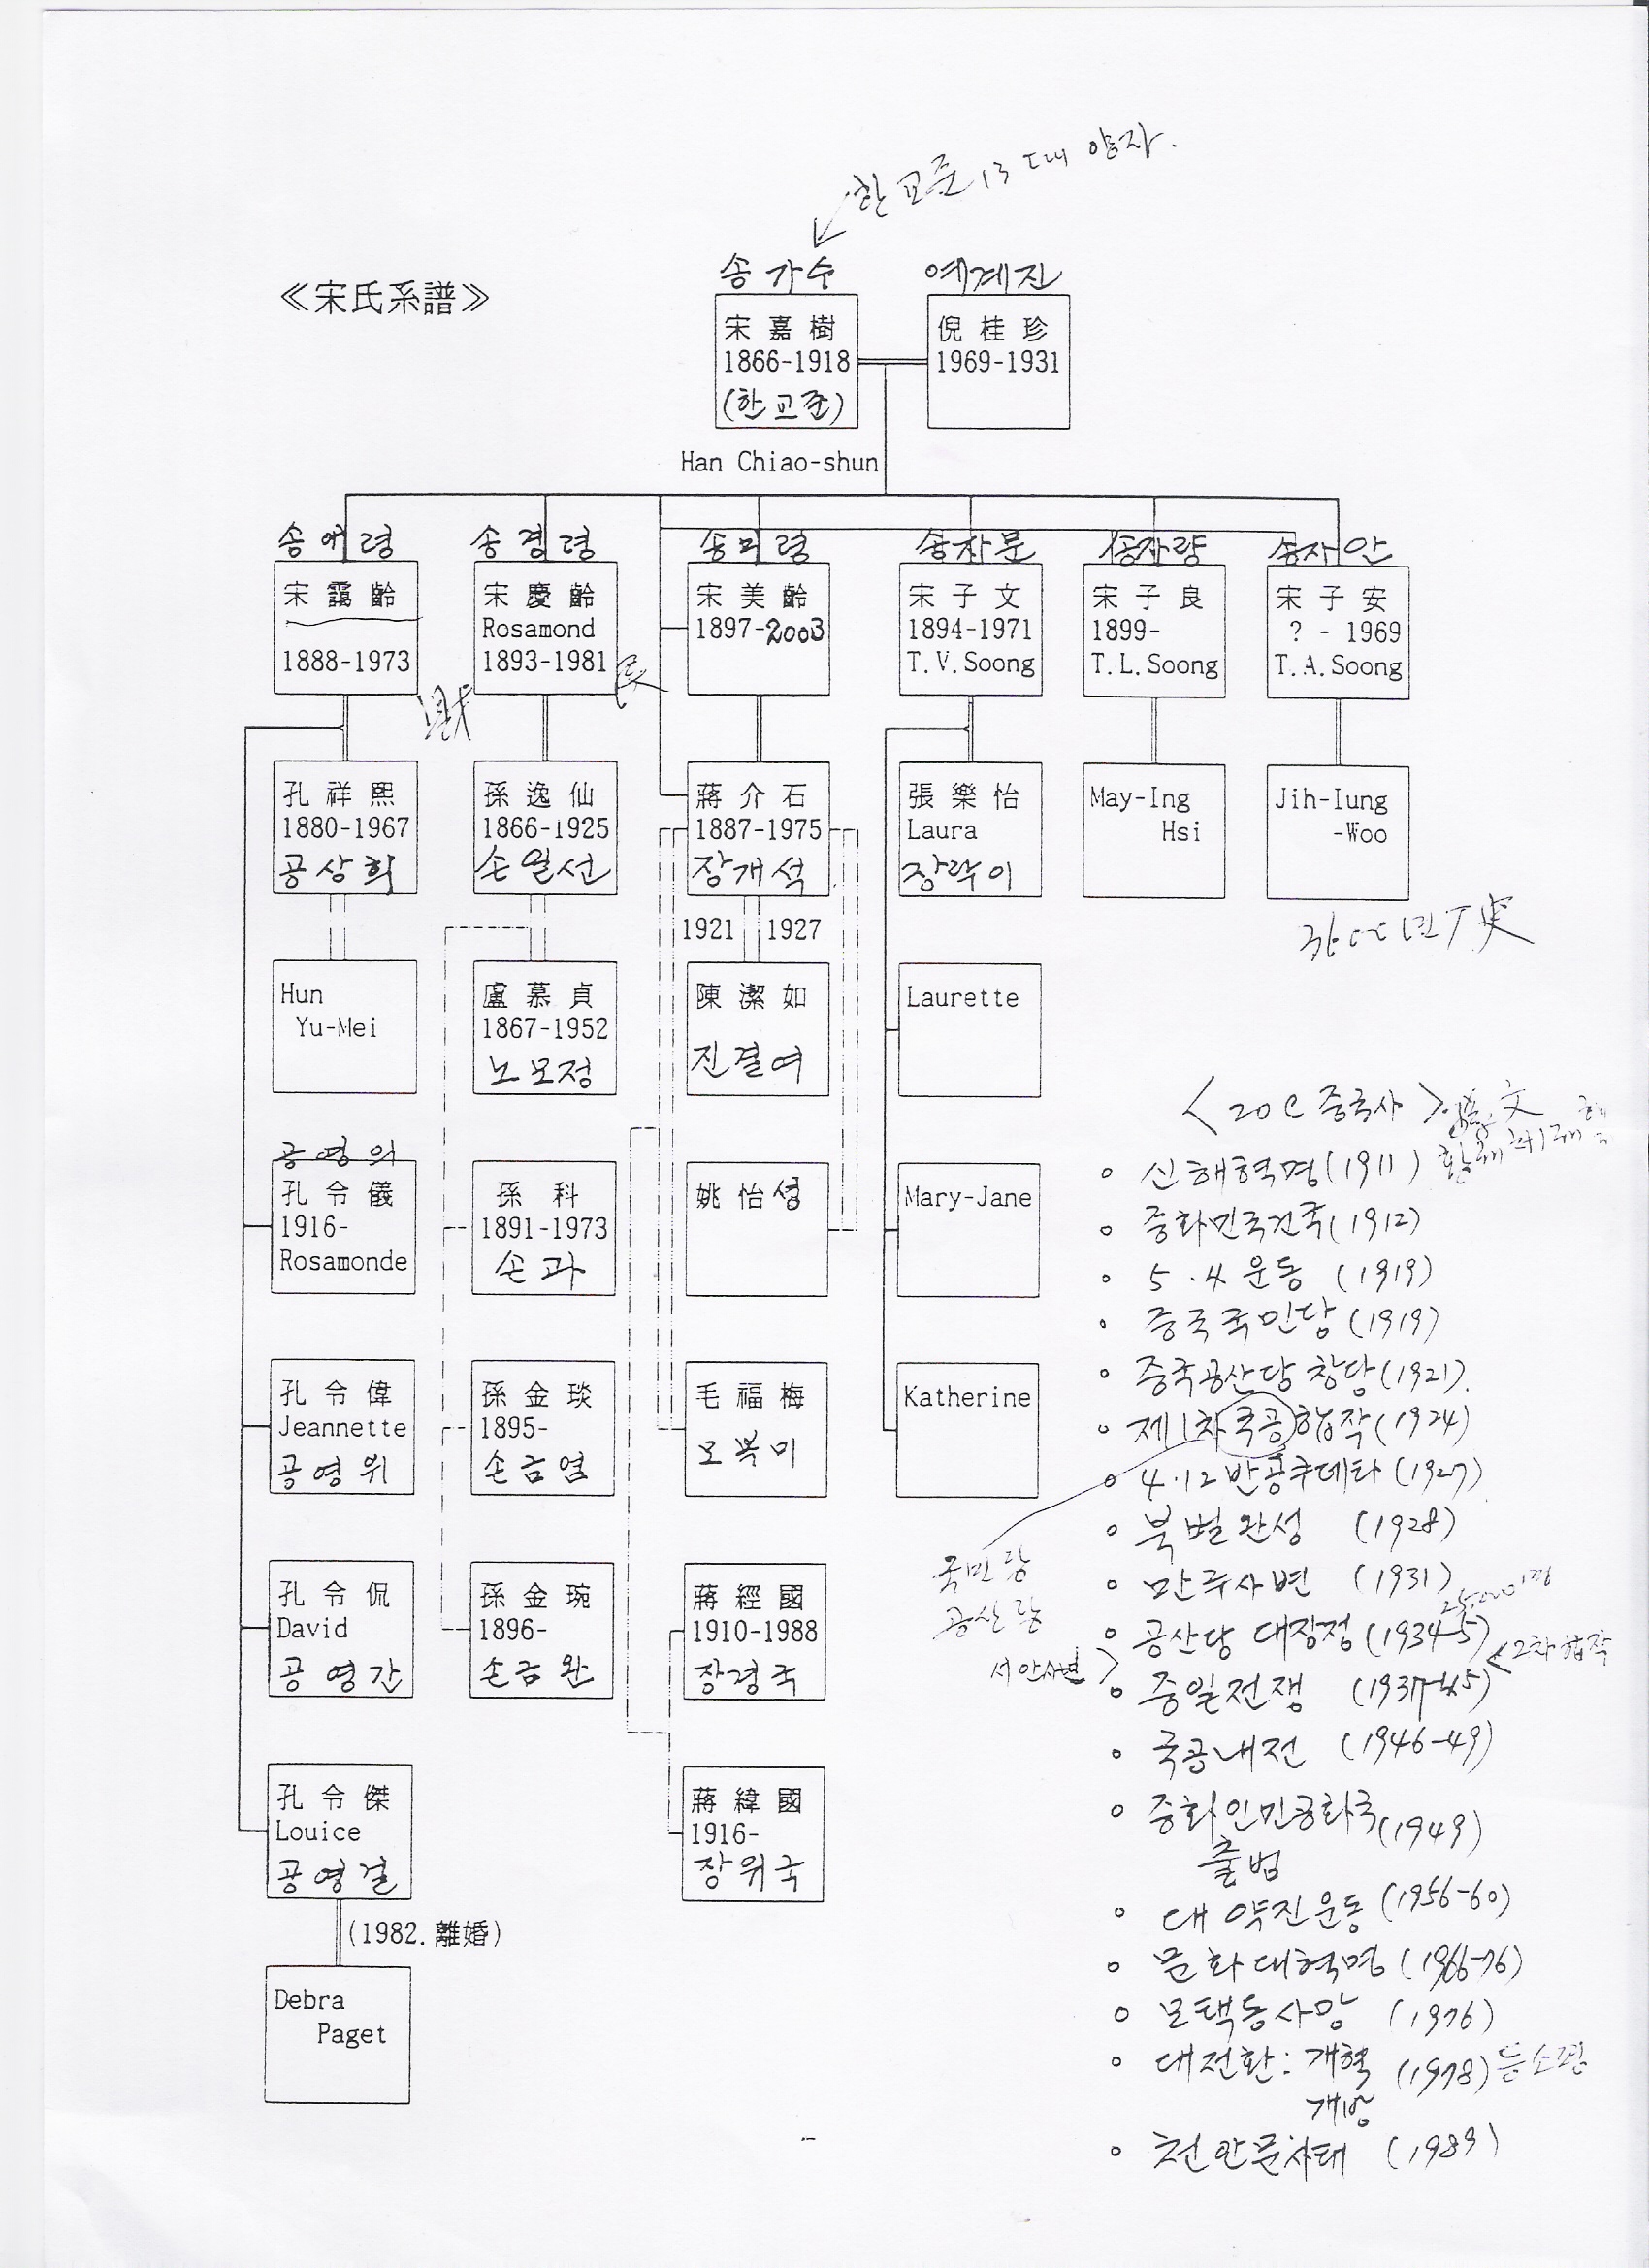 한교준 13대 양자.
송가수 예계진
≪宋氏系譜≫
宋嘉樹
1866-1918
(한교준)
倪桂珍
1969-1931
Han Chiao-shun
송애령
宋靄齡
1888-1973
송경령
宋慶齡
Rosamond
1893-1981
송미령
宋美齡
1897-2003
송자문
宋子文
1894-1971
T.V.Soong
송자량
宋子良
1899-
T.L.Soong
송자안
宋子安
? - 1969
T.A.Soong
財
民
孔祥熙
1880-1967
공상희
孫逸仙
1866-1925
손일선
蔣介石
1887-1975
장개석
張樂怡
Laura
장락이
May-Ing
Hsi
Jih-Iung
-Woo
1921 1927
Hun
Yu-Mei
盧慕貞
1867-1952
노모정
陳潔如
진결여
Laurette
공영의
孔令儀
1916-
Rosamonde
孫科
1891-1973
손과
姚怡성
Mary-Jane
孔令偉
Jeannette
공영위
孫金琰
1895-
손금염
毛福梅
모복미
Katherine
孔令侃
David
공영간
孫金琬
1896-
손금완
蔣經國
1910-1988
장경국
孔令傑
Louice
공영걸
蔣緯國
1916-
장위국
(1982.離婚)
Debra
Paget
<20C 중국사> 孫文
신해혁명(1911)
중화민국건국(1912)
5.4 운동 (1919)
중국국민당 (1919)
중국공산당 창당(1921).
제1차국공合作(1924)
4.12반공쿠데타(1927)
북벌완성 (1928)
국민당
공산당
만주사변 (1931)
공산당 대장정(1934-5)
2차合作
서안사변
중일전쟁 (1937-45)
국공내전 (1946-49)
중화인민공화국(1949)
출범
대약진운동(1956-60)
문화대혁명(1966-76)
모택동사망 (1976)
대전환: 개혁 (1978) 등소평
개방
천안문사태 (1989)